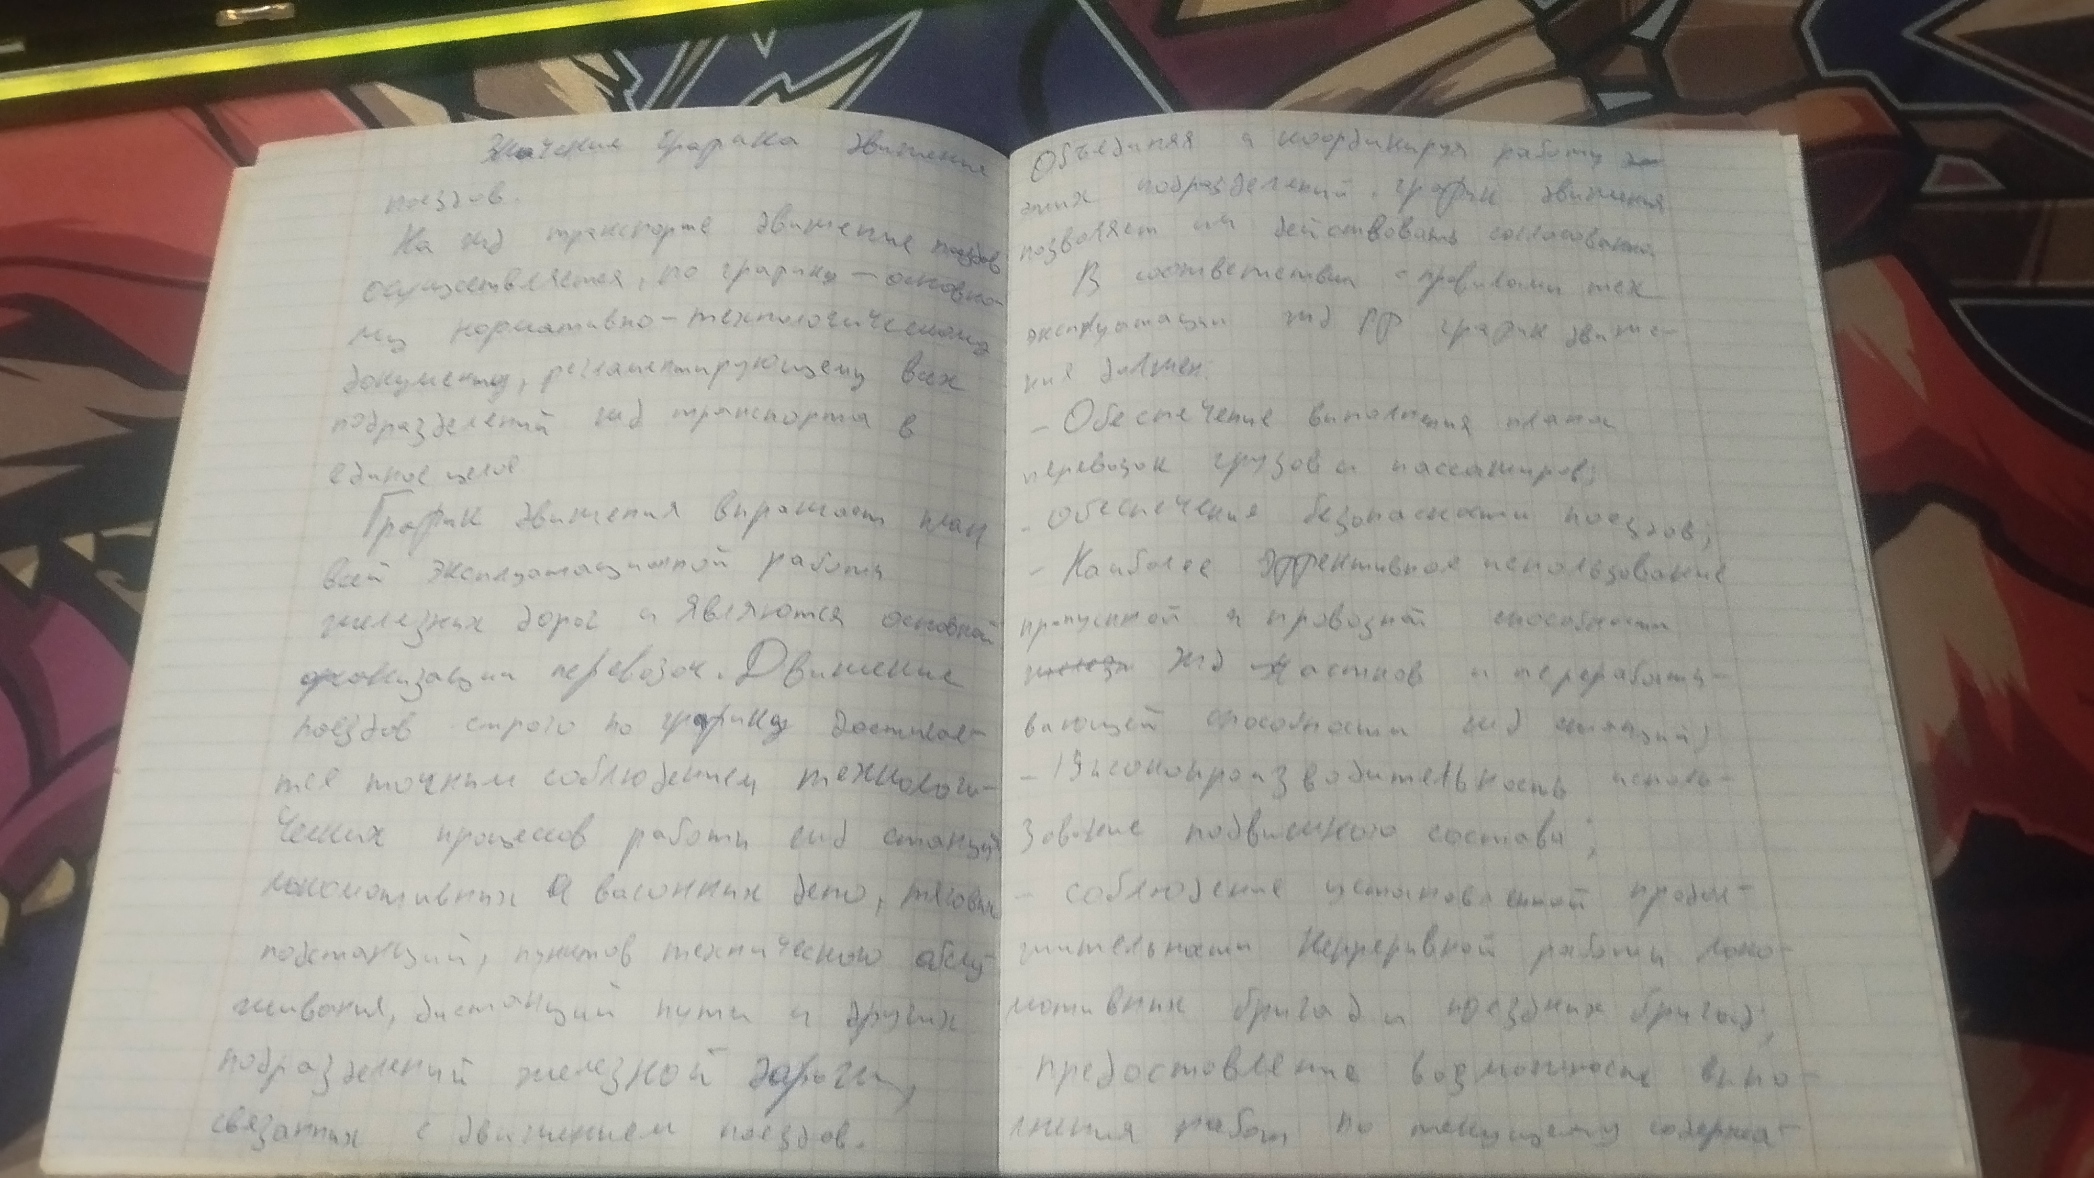 Значение графика движения
поездов.
На жд транспорте движение поездов
осуществляется, по графику – основно-
му нормативно-технологическому
документу, регламентирующему всех
подразделений жд транспорта в
единое целое
График движения выражает план
всей эксплуатационной работы
железных дорог и являются основной
организации перевозок. Движение
поездов строго по графику достигает-
тся точным соблюдением технологи-
ческих процессов работы жд станций
локомотивных и вагонных депо, тяговых
подстанций, пунктов технического обслу-
живания, дистанций пути и других
подразделений железной дороги,
связанных с движением поездов.
Объединяя и координируя работу
этих подразделений, график движения
позволяет им действовать согласованно
В соответствии с правилами тех
эксплуатации жд РФ график движе-
ния должен:
– Обеспечение выполнения плана
перевозок грузов и пассажиров;
– Обеспечения безопасности поездов;
– Наиболее эффективное использование
пропускной и провозной способности
жд участков и перерабаты-
вающей способности жд станций;
– Высокопроизводительность исполь-
зование подвижного состава;
– соблюдение установленной продол-
жительности непрерывной работы локо-
мотивных бригад и поездных бригад;
предоставление возможности выпо-
лнения работ по текущему содержа-